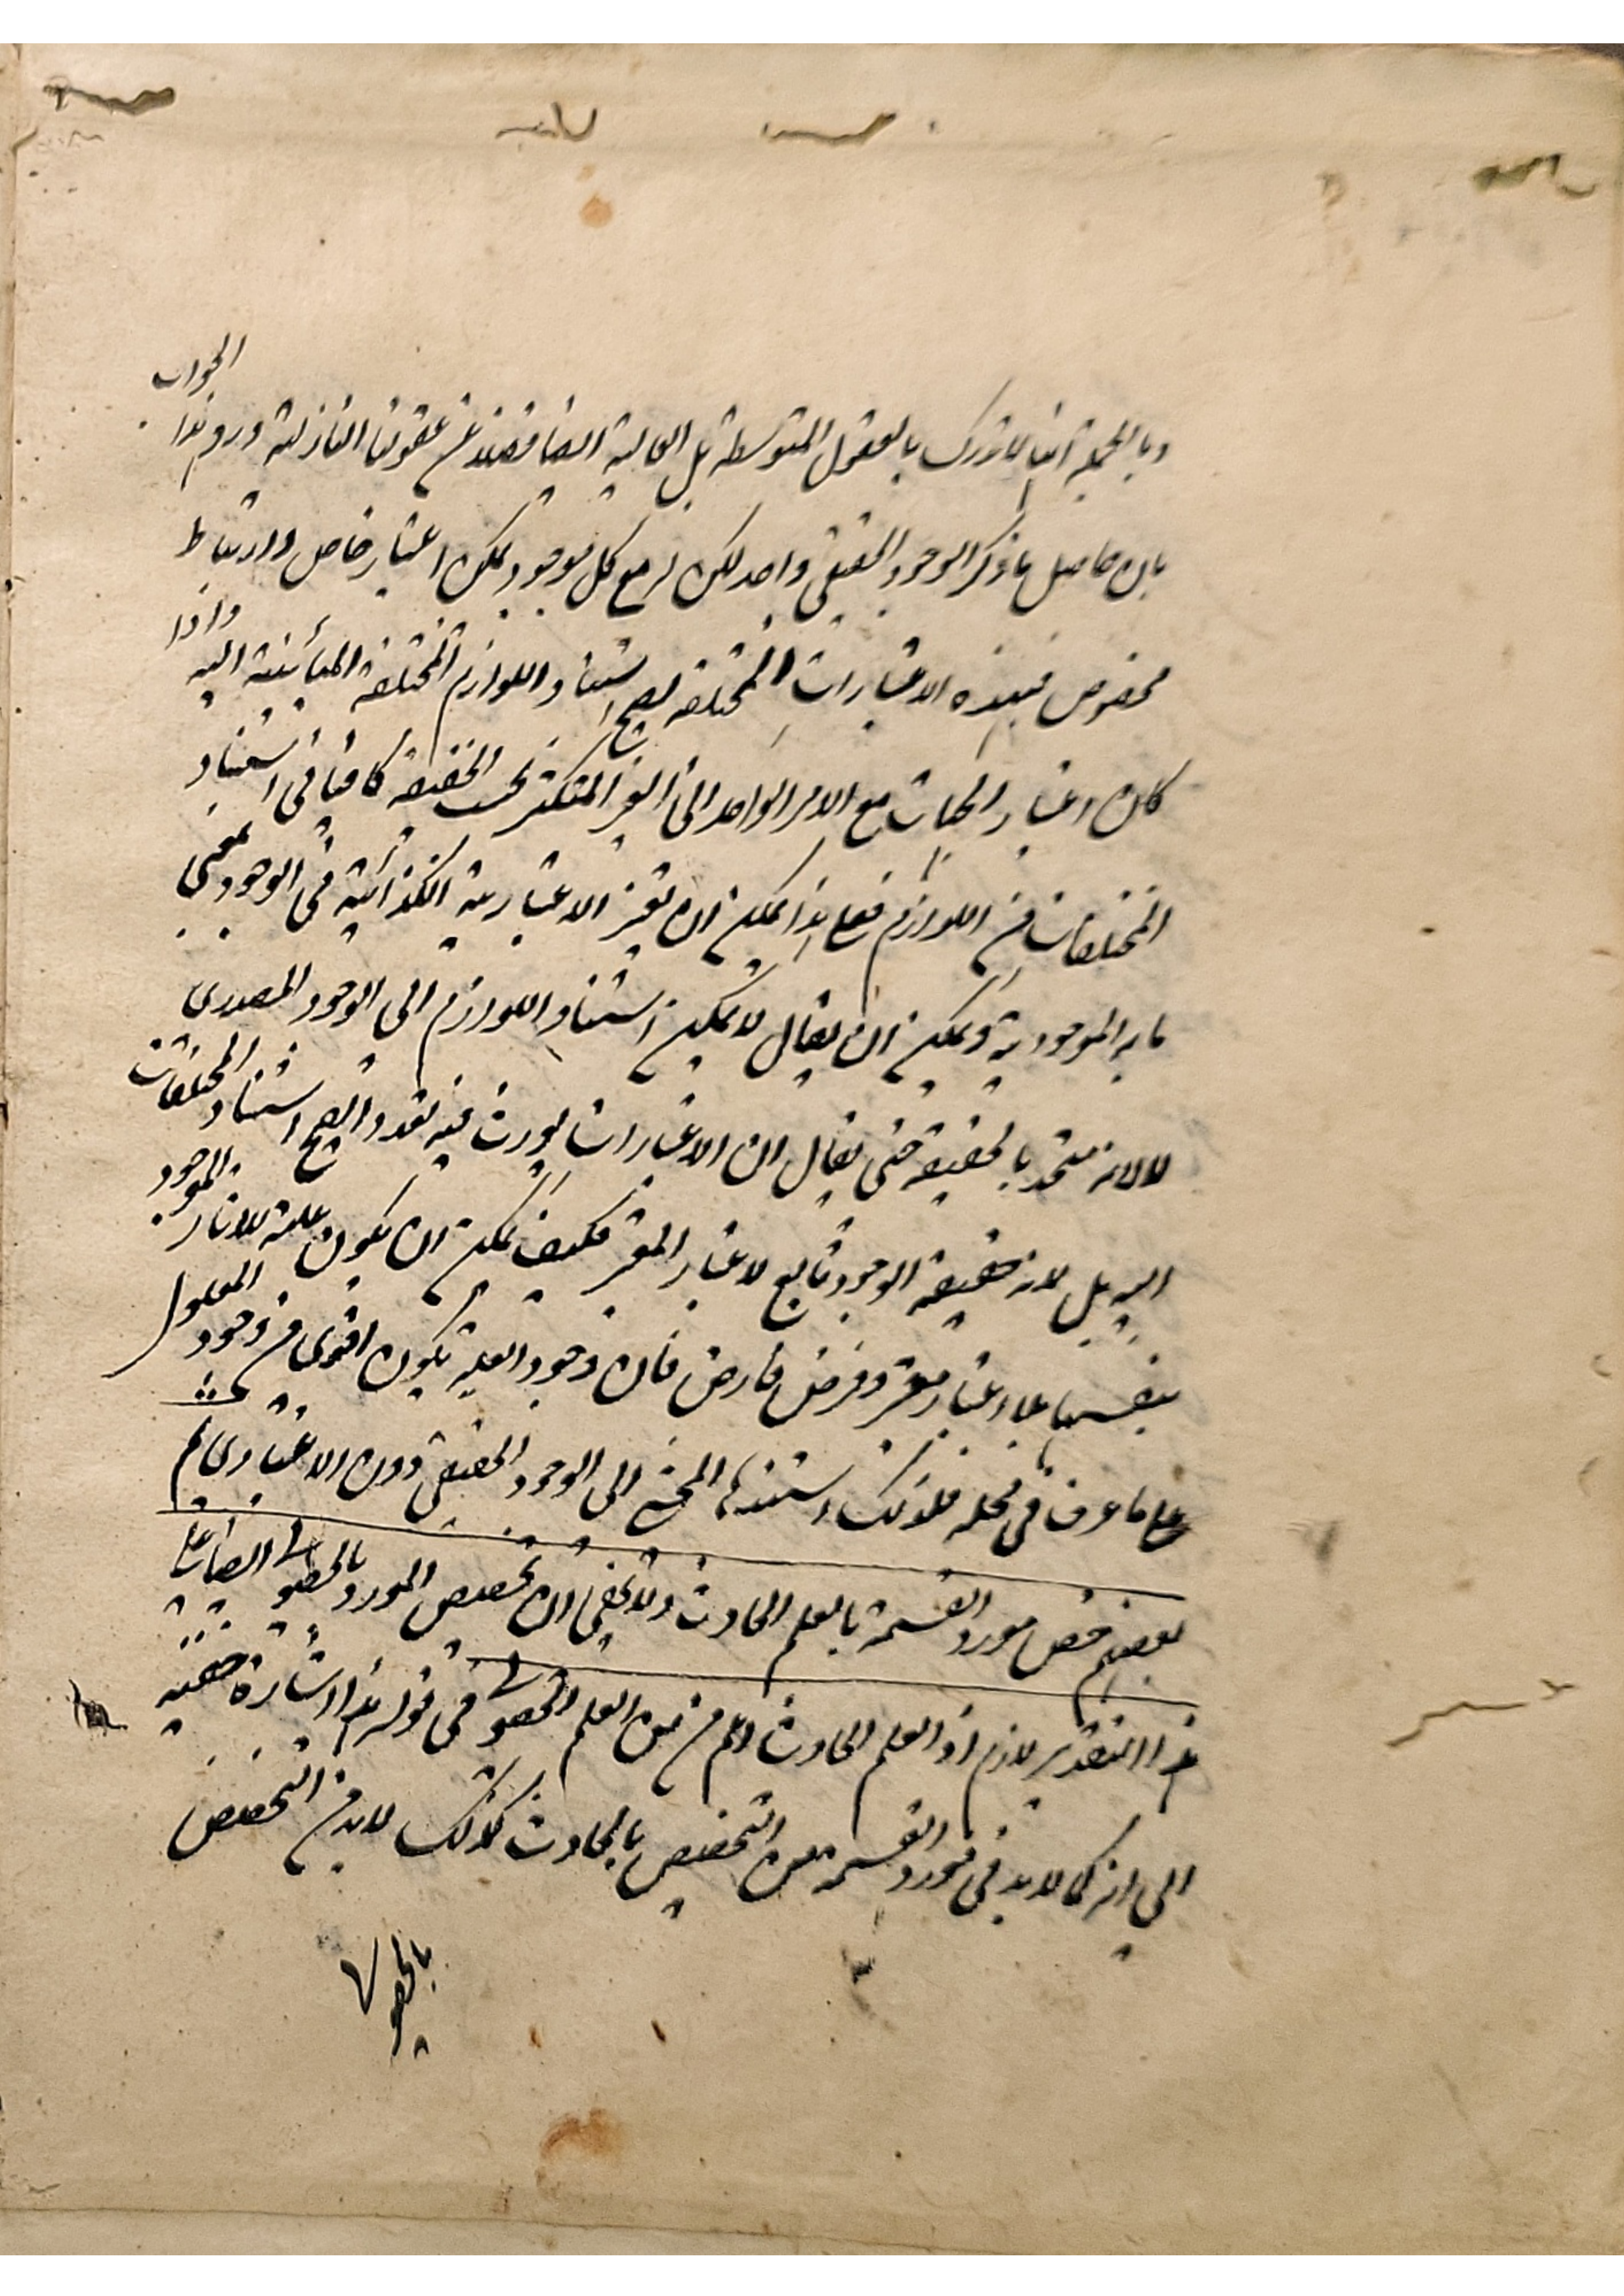 وبالجملة انها لا تدرك بالعقول المتوسطة بل العالية ايضا فضلا عن عقولنا النازلية ورد هذا الجواب
بان حاصل ما ذكر الوجود الحقيقي واحد لكن له مع كل موجود ممكن اعتبار خاص وارتباط
مخصوص فبهذه الاعتبارات المختلفة يصح استناد اللوازم المختلفة المبائنية اليه واذا
كان اعتبار الجهات مع الامر الواحد الغير المتكثر بحسب الحقيقة كافيا في استناد
المختلفات من اللوازم فعلى هذا يمكن ان تعتبر الاعتبارية الكذائية في الوجود بمعنى
ما به الموجودية ويمكن ان يقال لا يمكن استناد اللوازم الى الوجود المصدرى
لا لانه متحد بالحقيقة حتى يقال ان الاعتبارات يورث فيه تعددا يصح استناد المختلفات
اليه بل لانه حقيقة الوجود تابع لاعتبار المعتبر فكيف يمكن ان يكون علة للاثار الموجود
بنفسها بلا اعتبار معتبر وفرض فارض فان وجود العلة يكون اقوى من وجود المعلول
على ما عرف في محله فلذلك استندها المحشى الى الوجود الحقيقي دون الاعتبارى
بعضهم خص مورد القسمة بالعلم الحادث ولا يخفى ان تخصيص المورد بالحصولى ايضا على
هذا التقدير لازم اذ العلم الحادث اعم من العلم الحصولى في قوله هذا اشارة خفية
الى انه كما لا بد في مورد القسمة من التخصيص بالحادث كذلك لا بد من التخصيص
بالحصولى